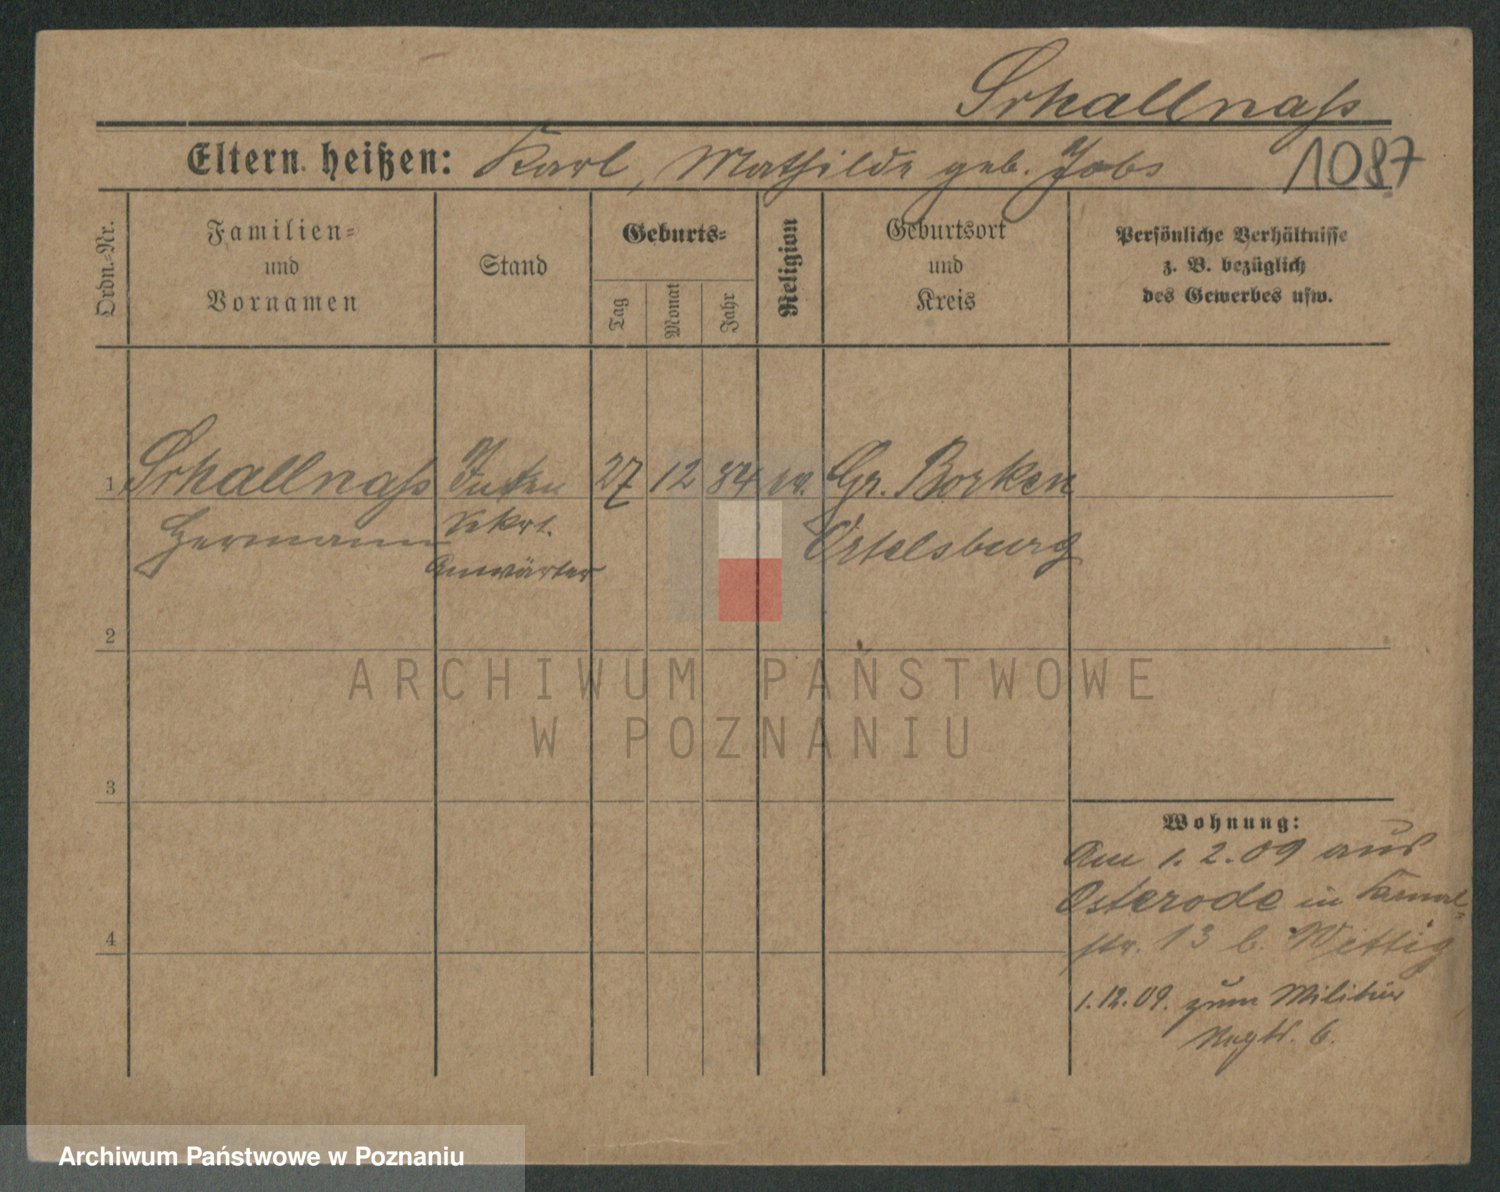 Schallnass
Eltern heißen: Karl, Mathilde geb. Jobs 1087
Ordn.-Nr.
Familien-
und
Vornamen
Stand
Geburts-
Tag
Monat
Jahr
Religion
Geburtsort
und
Kreis
Persönliche Verhältnisse
z. B. bezüglich
des Gewerbes usw.
1 Schallnass Inten 27 12 84 ev. Gr. Borken
Hermann Sekrt. Ortelsburg
Anwärter
2
ARCHIWUM PAŃSTWOWE
W POZNANIU
3
Wohnung:
Am 1.2.09 aus
Osterode in
str. 13 b. Wittig
4
1.12.09. zum Militär
Regt. 6.
Archiwum Państwowe w Poznaniu